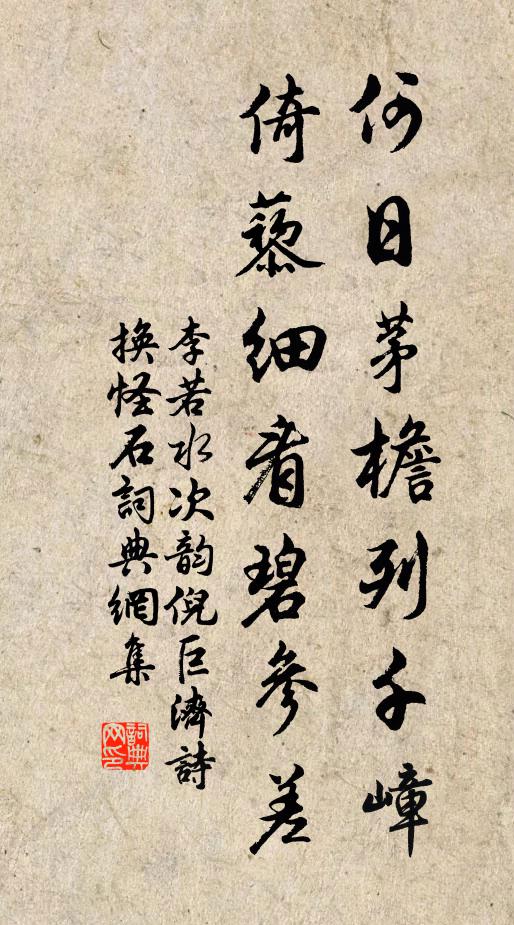 何日茅檐列千嶂
倚藜细看碧參差
李若水次韵倪巨濟詩
換怪石詞典網集
詞典網印